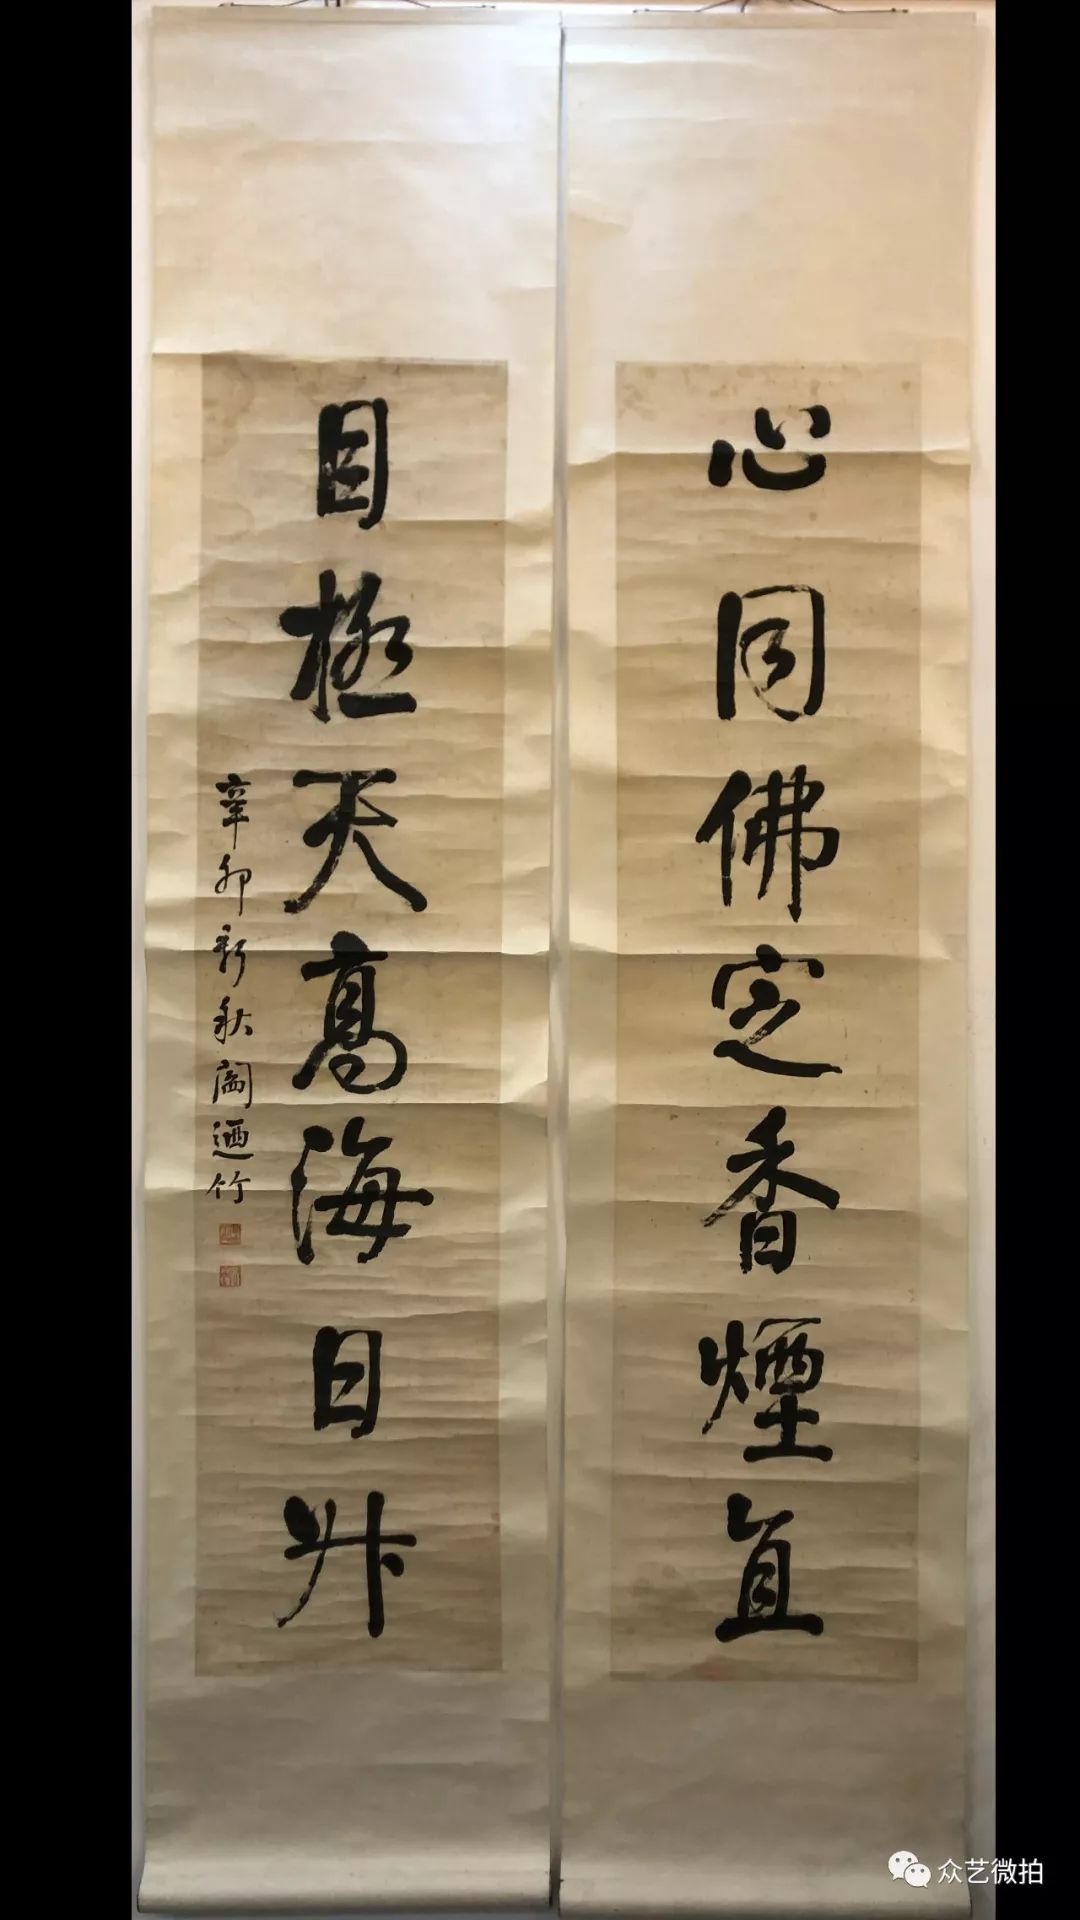 心同佛定香煙直
目極天高海日升
辛卯新秋闔迺竹
众艺微拍